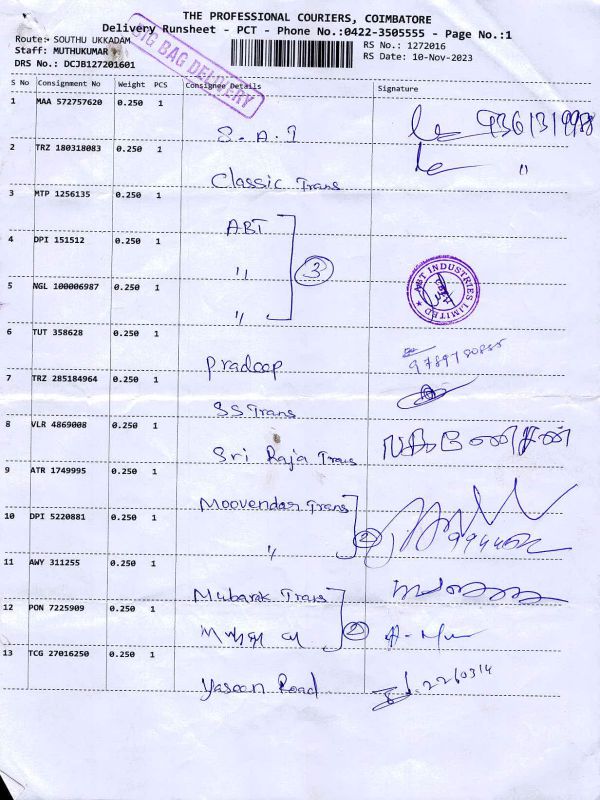 THE PROFESSIONAL COURIERS, COIMBATORE
Delivery Runsheet - PCT - Phone No.:0422-3505555 - Page No.:1
Route:- SOUTHU UKKADAM
Staff: MUTHUKUMAR
DRS No.: DCJB127201601
BIG BAG DELIVERY
RS No.: 1272016
RS Date: 10-Nov-2023
S No Consignment No Weight PCS Consignee Details Signature
1 MAA 572757620 0.250 1
S. A. I
2 TRZ 180318083 0.250 1 "
Classic Trans
3 MTP 1256135 0.250 1
ABT
4 DPI 151512 0.250 1
" 3
5 NGL 100006987 0.250 1
ABT INDUSTRIES LIMITED
"
6 TUT 358628 0.250 1
Pradeep
7 TRZ 285184964 0.250 1
SS Trans
8 VLR 4869008 0.250 1
Sri Raja Trans
9 ATR 1749995 0.250 1
Moovendar Trans
10 DPI 5220881 0.250 1 2
"
11 AWY 311255 0.250 1
Mubarak Trans
12 PON 7225909 0.250 1
2
13 TCG 27016250 0.250 1
Yaseen Road